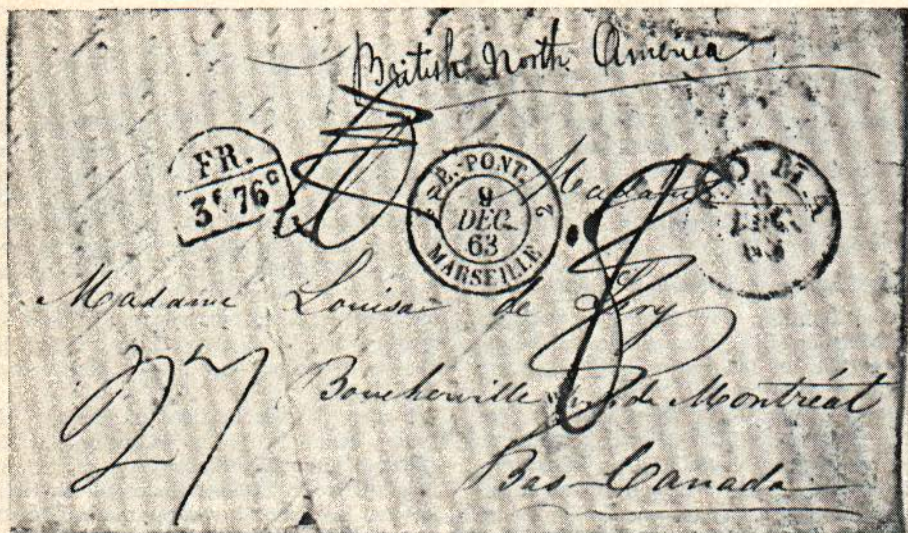 British North America
FR.
3f. 76c
E. PONT. 2
9
DEC.
63
MARSEILLE
Madame
8
Madame Louisa de Léry
27
Boucherville de Montréal
Bas-Canada